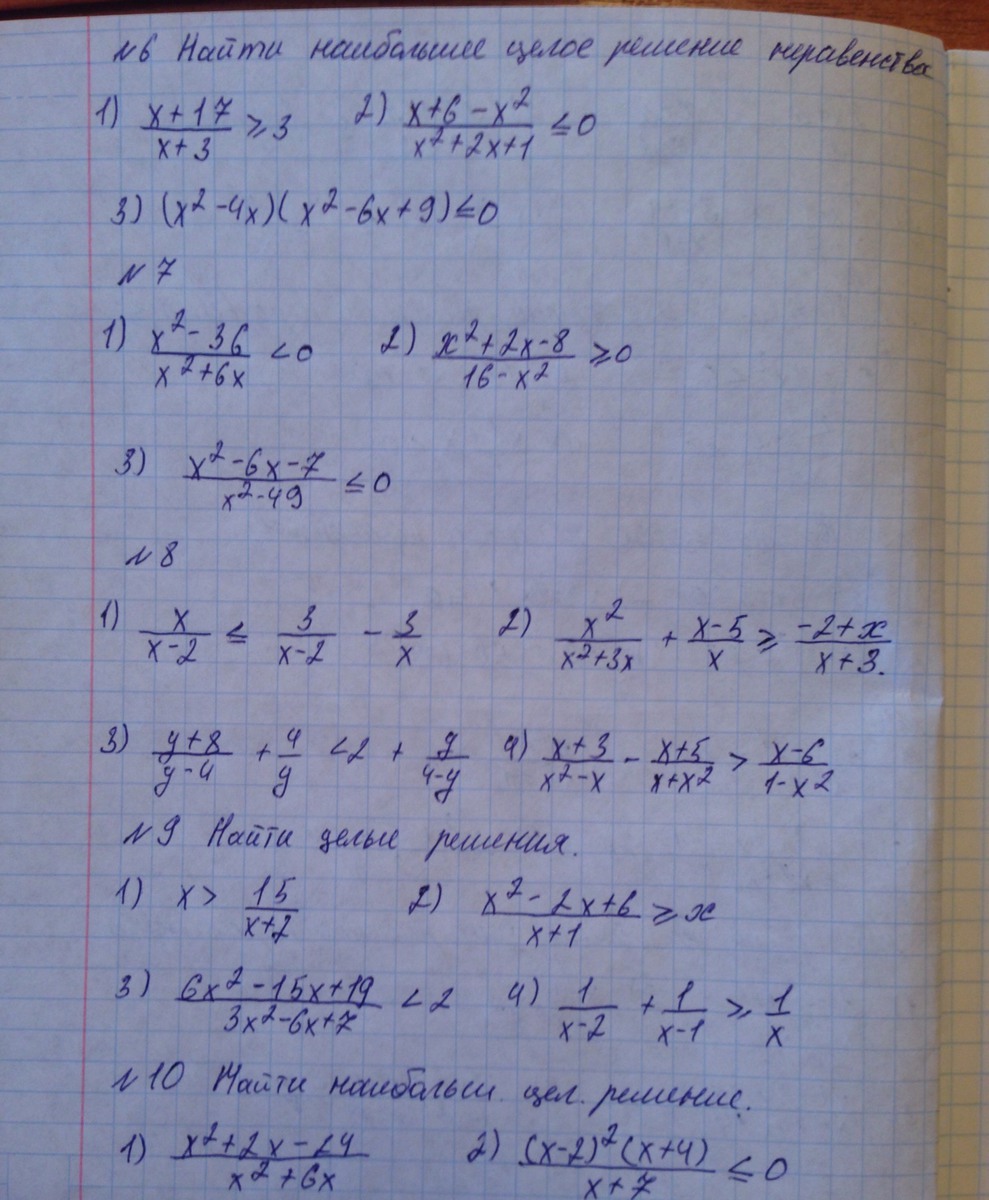 №6 Найти наибольшее целое решение неравенства
1) (x+17)/(x+3) ≥ 3 2) (x+6-x²)/(x²+2x+1) ≤ 0
3) (x²-4x)(x²-6x+9) ≤ 0
№7
1) (x²-36)/(x²+6x) < 0 2) (x²+2x-8)/(16-x²) ≥ 0
3) (x²-6x-7)/(x²-49) ≤ 0
№8
1) x/(x-2) ≤ 3/(x-2) - 3/x 2) x²/(x²+3x) + (x-5)/x ≥ (-2+x)/(x+3).
3) (y+8)/(y-4) + 4/y < 2 + y/(4-y) 4) (x+3)/(x²-x) - (x+5)/(x+x²) > (x-6)/(1-x²)
№9 Найти целые решения.
1) x > 15/(x+2) 2) (x²-2x+6)/(x+1) ≥ x
3) (6x²-15x+19)/(3x²-6x+7) < 2 4) 1/(x-2) + 1/(x-1) ≥ 1/x
№10 Найти наибольш. цел. решение.
1) (x²+2x-24)/(x²+6x) 2) (x-2)²(x+4)/(x+7) ≤ 0